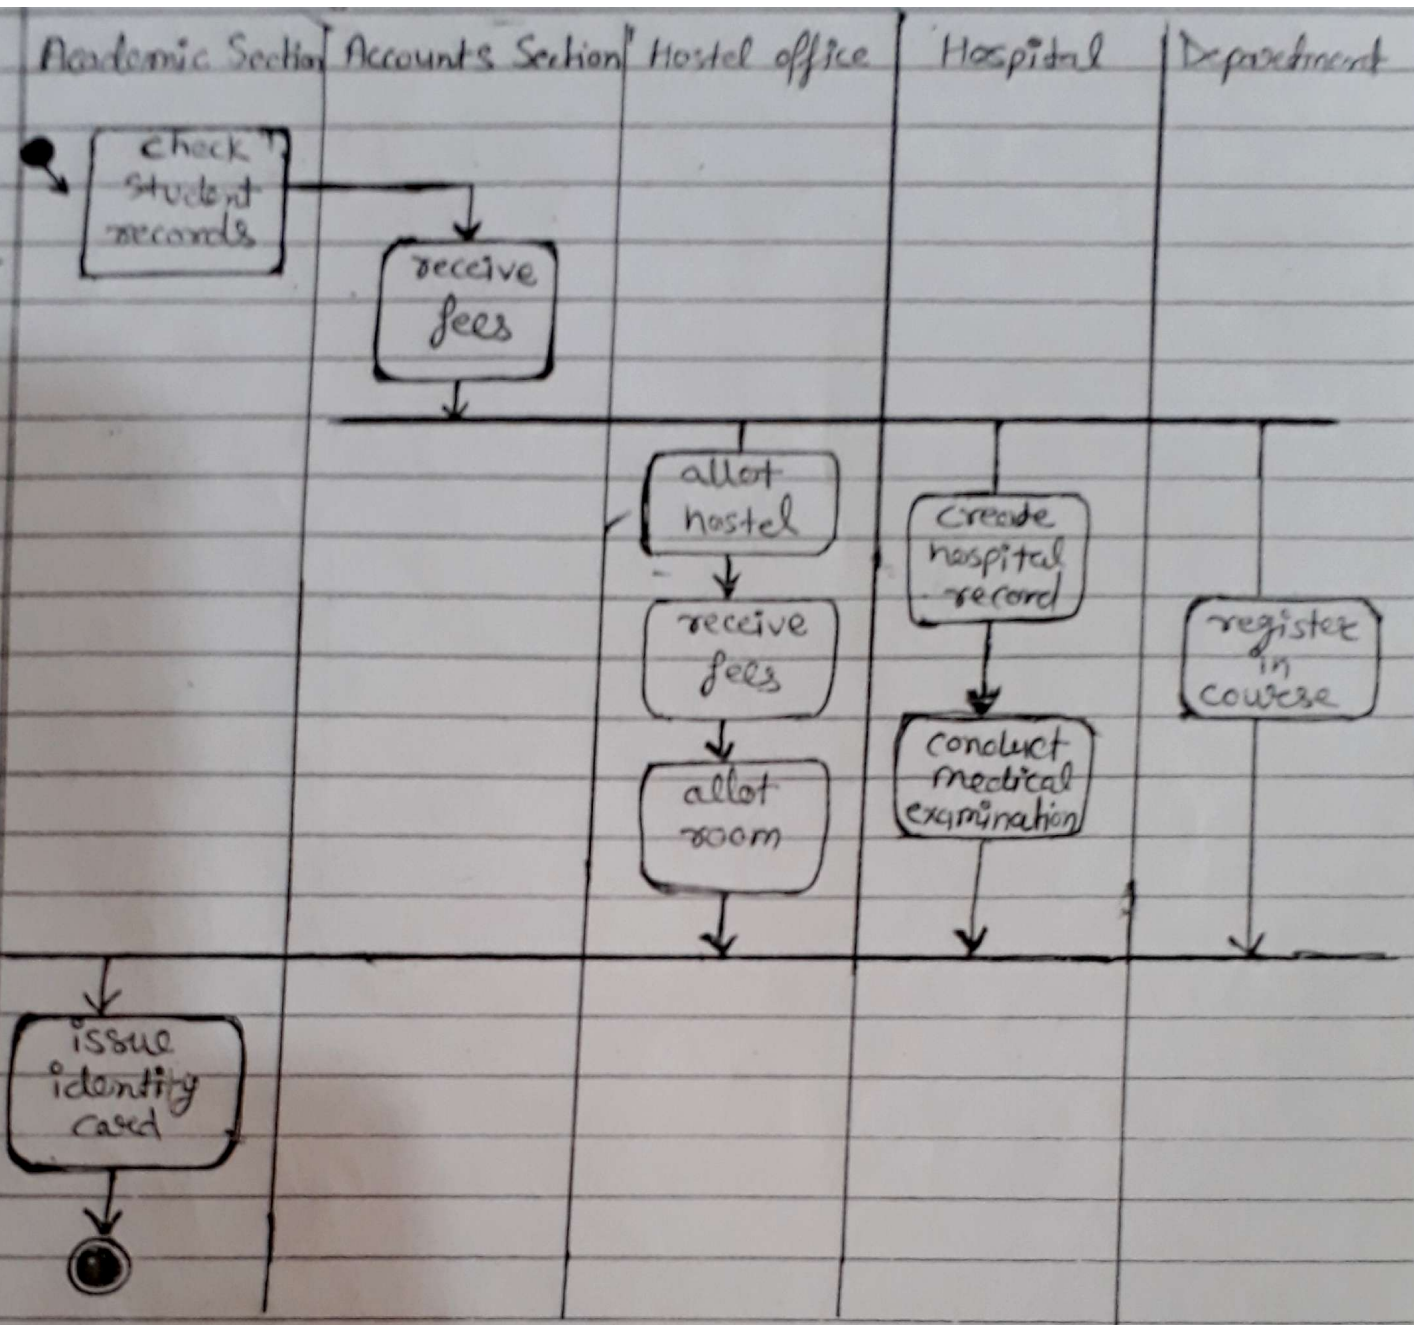 Academic Section
Accounts Section
Hostel office
Hospital
Department
check
student
records
receive
fees
allot
hostel
receive
fees
allot
room
create
hospital
record
conduct
medical
examination
register
in
course
issue
identity
card